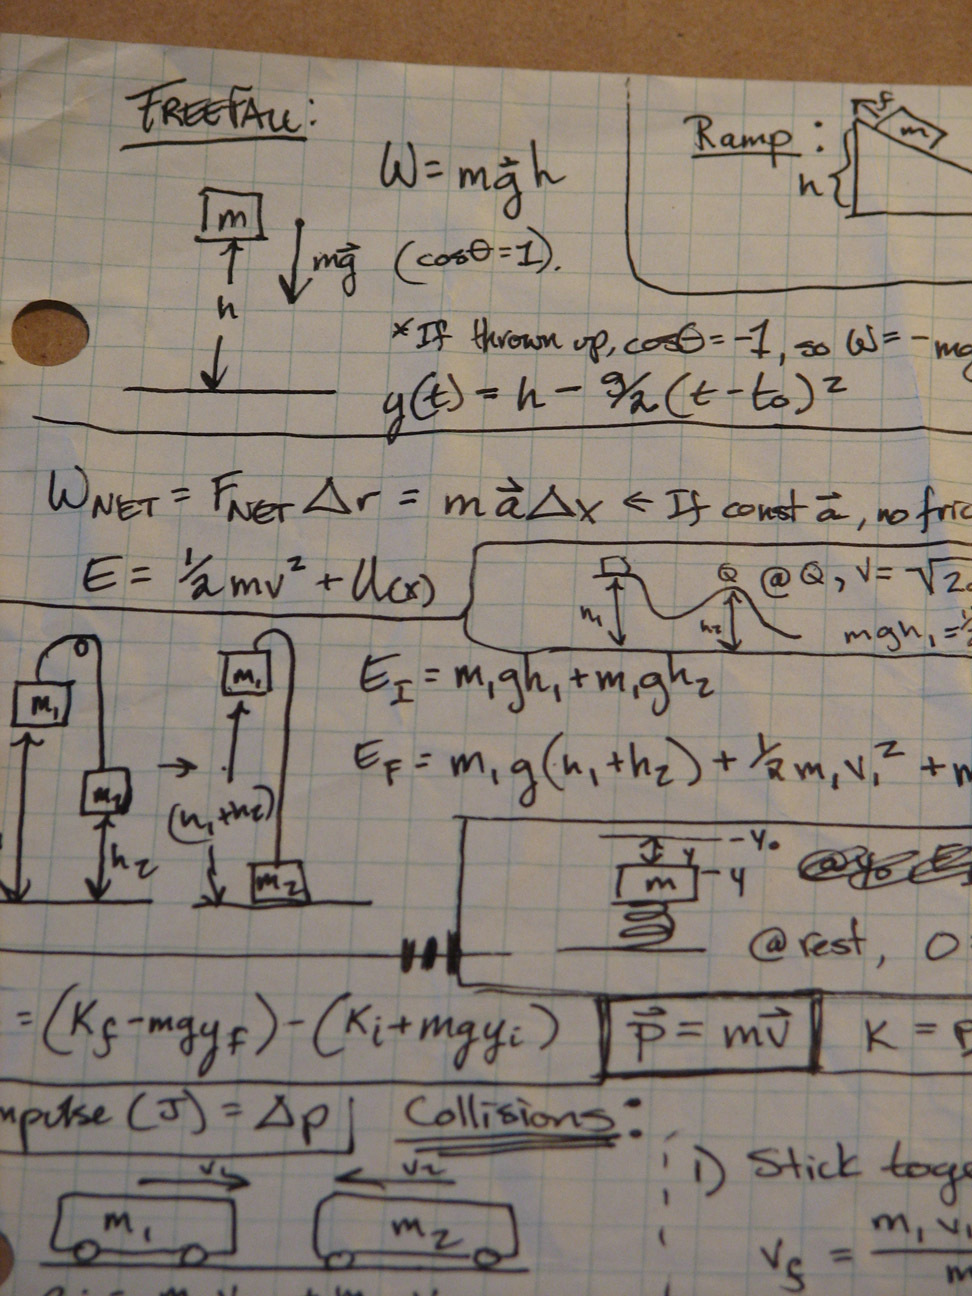 FREEFALL:
W = mg⃗h
m
mg⃗
(cosθ=1).
h
Ramp:
f
m
h
*If thrown up, cosθ=-1, so W= -mg
y(t) = h - g/2 (t-t₀)²
W_NET = F_NET Δr = m a⃗ Δx ← If const a⃗, no fric
E = ½mv² + U(x)
Q @ Q, v = √2
h₁ h₂ mgh₁ = ½
m₁ m₂ h₂
→
m₁ (h₁+h₂) m₂
E_I = m₁gh₁ + m₁gh₂
E_F = m₁g(h₁+h₂) + ½m₁v₁² + m
-y₀
y
m -y
@rest, 0
= (K_f - mgy_f) - (K_i + mgy_i)
p⃗ = mv⃗
K = p
mpulse (J) = Δp
Collisions:
v₁ v₂
m₁ m₂
1) Stick toge
v_f = m₁v₁
m